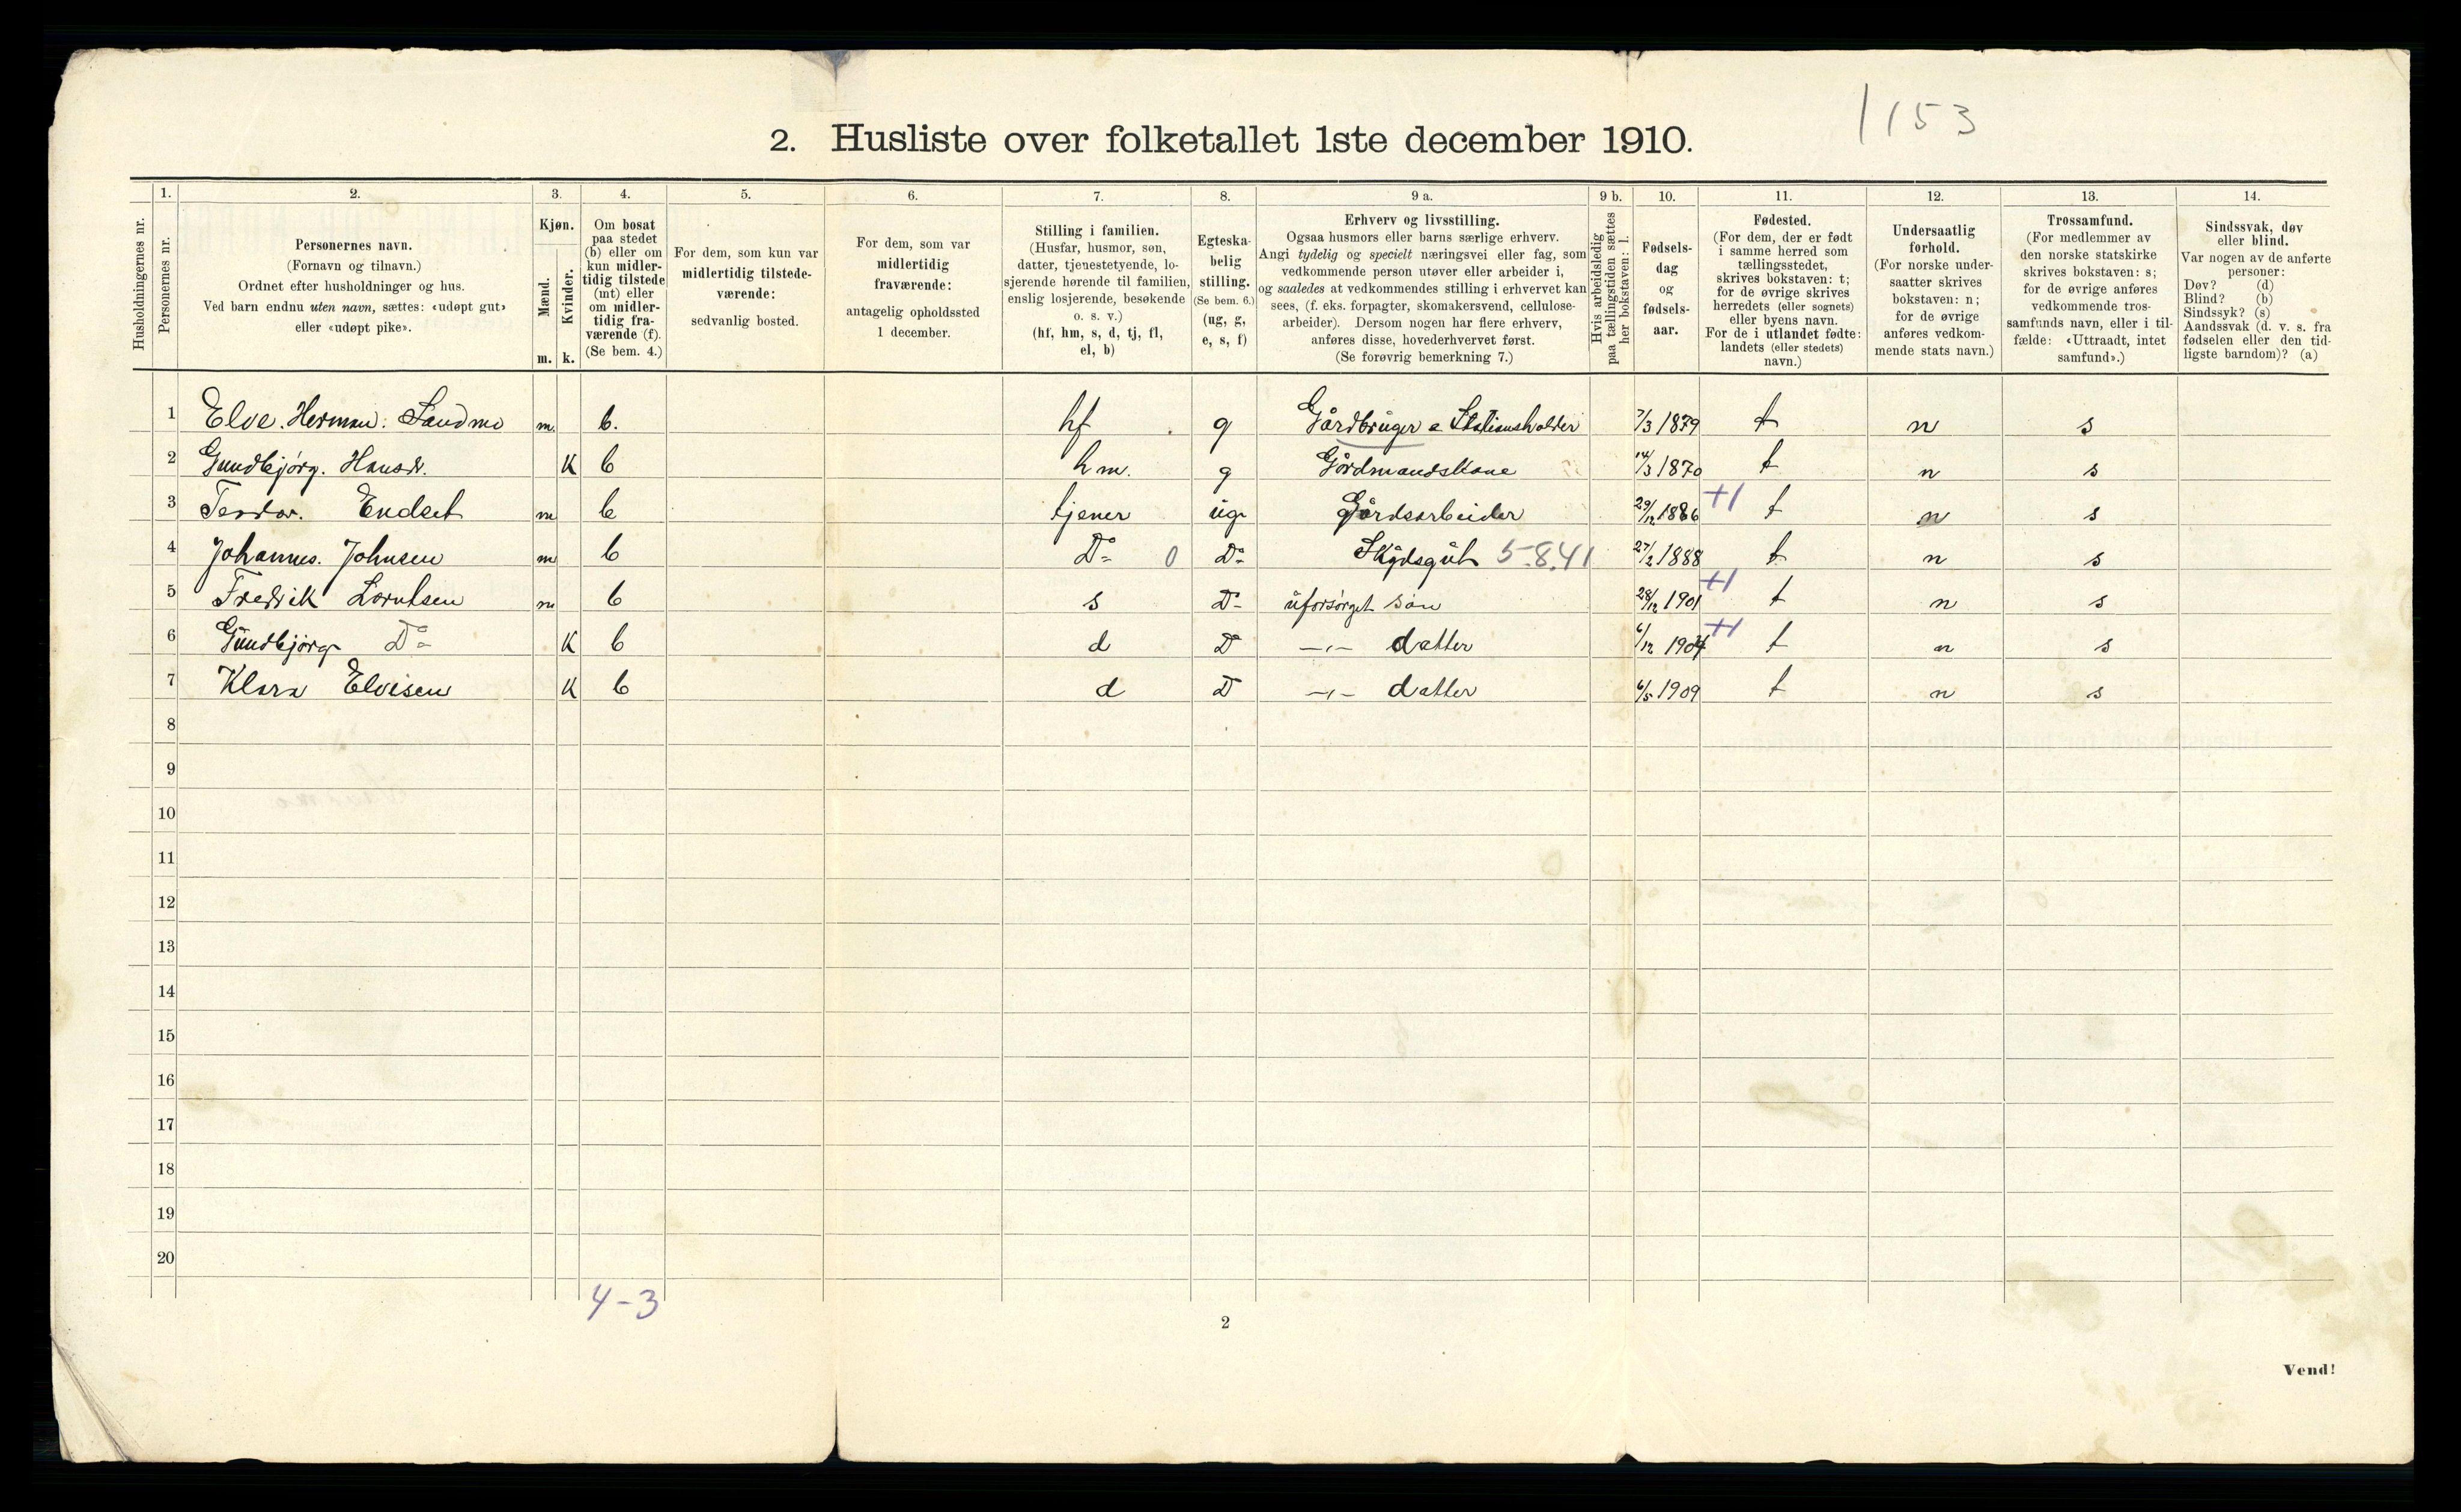 1153
2. Husliste over folketallet 1ste december 1910.
Husholdningernes nr.
1.
Personernes nr.
2.
Personernes navn.
(Fornavn og tilnavn.)
Ordnet efter husholdninger og hus.
Ved barn endnu uten navn, sættes: «udøpt gut»
eller «udøpt pike».
3.
Kjøn.
Mænd.
Kvinder.
m. k.
4.
Om bosat
paa stedet
(b) eller om
kun midler-
tidig tilstede
(mt) eller
om midler-
tidig fra-
værende (f).
(Se bem. 4.)
5.
For dem, som kun var
midlertidig tilstede-
værende:
sedvanlig bosted.
6.
For dem, som var
midlertidig
fraværende:
antagelig opholdssted
1 december.
7.
Stilling i familien.
(Husfar, husmor, søn,
datter, tjenestetyende, lo-
sjerende hørende til familien,
enslig losjerende, besøkende
o. s. v.)
(hf, hm, s, d, tj, fl,
el, b)
8.
Egteska-
belig
stilling.
(Se bem. 6.)
(ug, g,
e, s, f)
9 a.
Erhverv og livsstilling.
Ogsaa husmors eller barns særlige erhverv.
Angi tydelig og specielt næringsvei eller fag, som
vedkommende person utøver eller arbeider i,
og saaledes at vedkommendes stilling i erhvervet kan
sees, (f. eks. forpagter, skomakersvend, cellulose-
arbeider). Dersom nogen har flere erhverv,
anføres disse, hovederhvervet først.
(Se forøvrig bemerkning 7.)
9 b.
Hvis arbeidsledig
paa tællingstiden sættes
her bokstaven: l.
10.
Fødsels-
dag
og
fødsels-
aar.
11.
Fødested.
(For dem, der er født
i samme herred som
tællingsstedet,
skrives bokstaven: t;
for de øvrige skrives
herredets (eller sognets)
eller byens navn.
For de i utlandet fødte:
landets (eller stedets)
navn.)
12.
Undersaatlig
forhold.
(For norske under-
saatter skrives
bokstaven: n;
for de øvrige
anføres vedkom-
mende stats navn.)
13.
Trossamfund.
(For medlemmer av
den norske statskirke
skrives bokstaven: s;
for de øvrige anføres
vedkommende tros-
samfunds navn, eller i til-
fælde: «Uttraadt, intet
samfund».)
14.
Sindssvak, døv
eller blind.
Var nogen av de anførte
personer:
Døv? (d)
Blind? (b)
Sindssyk? (s)
Aandssvak (d. v. s. fra
fødselen eller den tid-
ligste barndom)? (a)
1 Elve. Herman: Sandmo m. b. hf g Gårdbruger & Stationsholder 7/3 1879 t n s
2 Gundbjørg. Hansdr. K b hm. g Gårdmandskone 14/3 1870 t n s
3 Endset m b tjener ug Gårdsarbeider 29/12 1886 +1 t n s
4 Johannes. Johnsen m b Do 0 Do Skydsgut 5.8.41 27/2 1888 t n s
5 Fredrik Lorntsen m b s D- uforsørget søn 28/12 1901 +1 t n s
6 Gundbjørg Do K b d D -"- datter 6/12 1904 +1 t n s
7 Klara Elvesen K b d D -"- datter 6/5 1909 t n s
8
9
10
11
12
13
14
15
16
17
18
19
20
4-3
2
Vend!